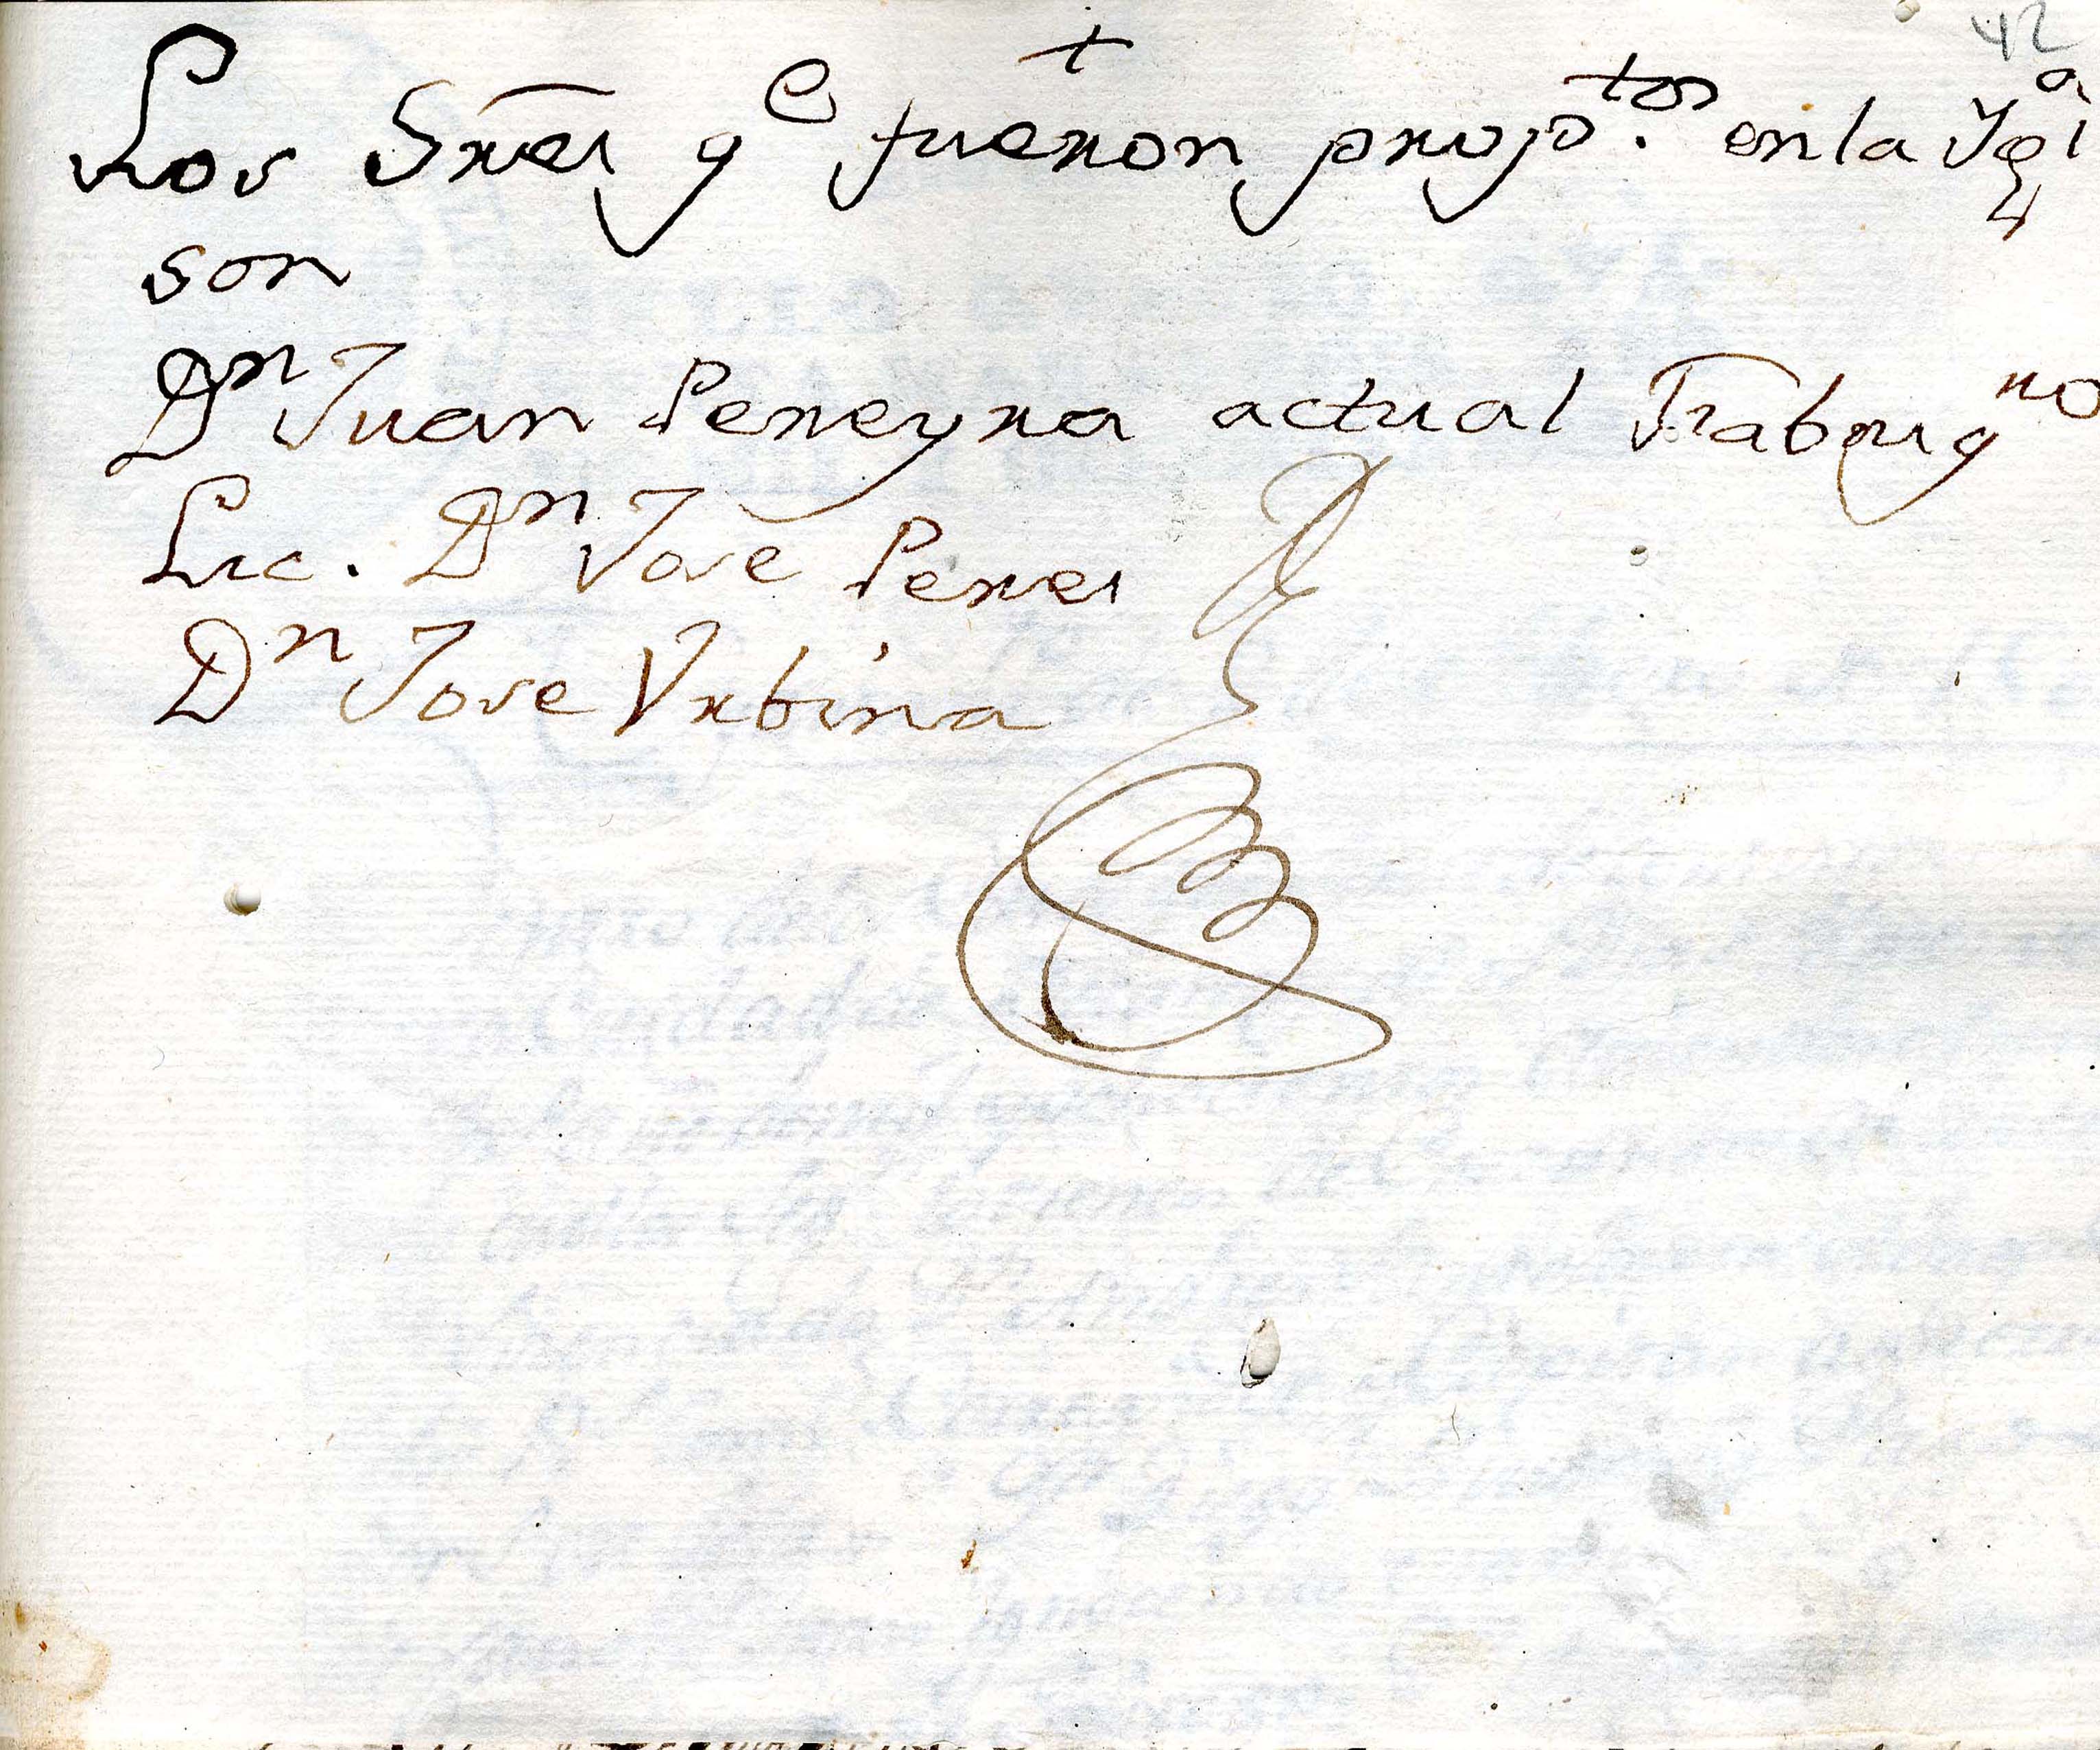 42
+
Los Sres qe fueron proptos. en la Yglᵃ
son
Dn Juan Pereyra actual
Lic. Dn Jose Peres
Dn Jose Vrbina